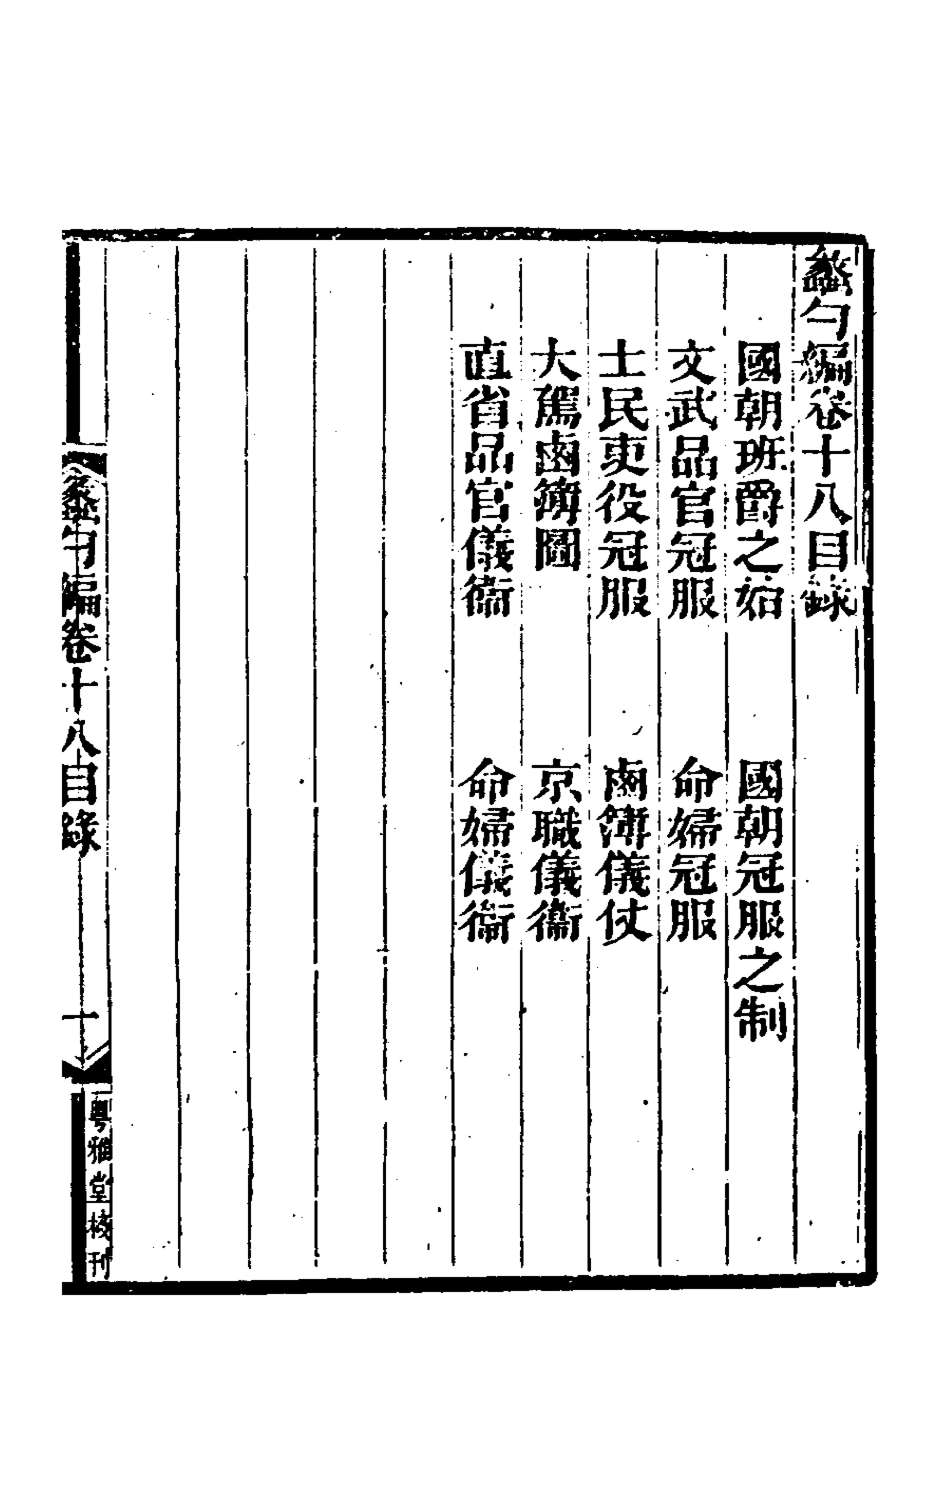 蠡勺編卷十八目錄
國朝班爵之始　國朝冠服之制
文武品官冠服　命婦冠服
士民吏役冠服　鹵簿儀仗
大駕鹵簿圖　京職儀衞
直省品官儀衞　命婦儀衞
蠡勺編卷十八目錄　一　粵雅堂校刊